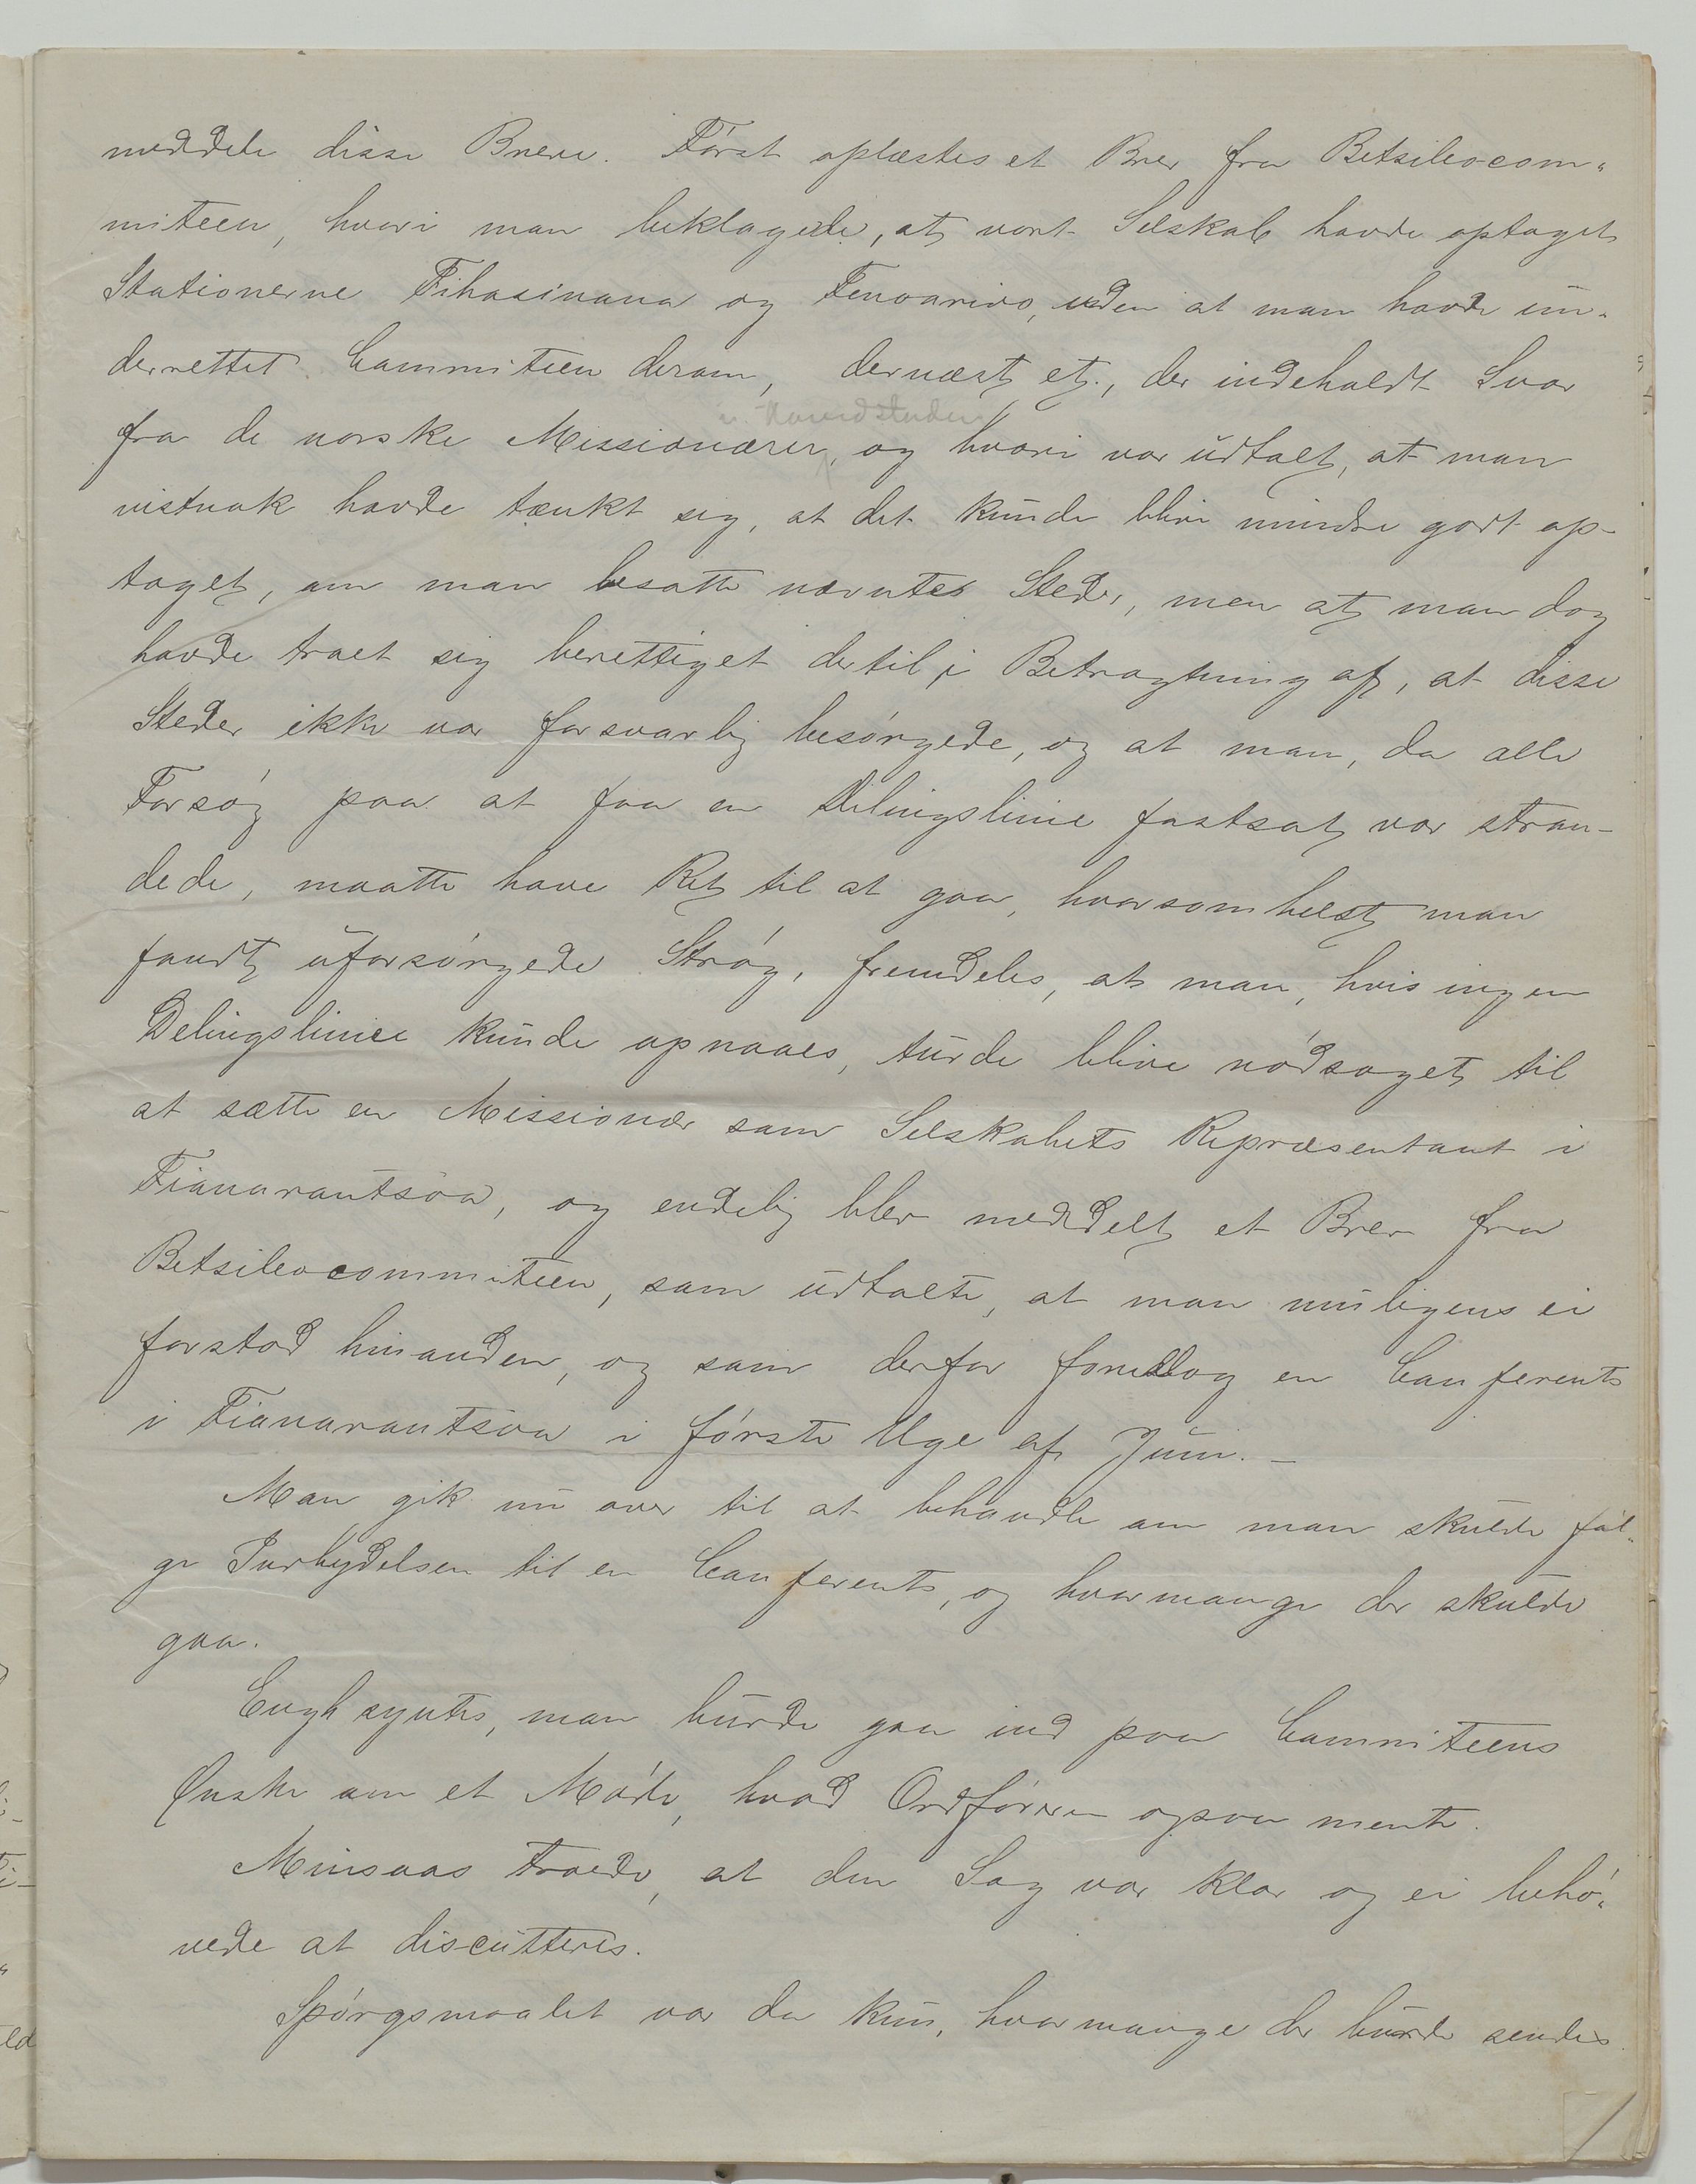 meddele disse Breve. Först oplæstes et Brev fra Betsileocom-
miteen, hvori man beklagede, at vort Selskab havde optaget
Stationerne Fihasinana og Fenoarivo, uden at man havde un-
derrettet Committeen derom, dernæst et, der indeholdt Svar
i Hovedstaden
fra de norske Missionærer, og hvori var udtalt, at man
vistnok havde tænkt sig, at det kunde blive mindre godt op-
taget, om man besatte nævnte Steder, men at man dog
havde troet sig berettiget dertil i Betragtning af, at disse
Steder ikke var forsvarlig besörgede, og at man, da alle
Forsög paa at faa en Delingslinie fastsat var stran-
dede, maatte have Ret til at gaa, hvorsomhelst man
fandt uforsörgede Strög, fremdeles, at man, hvis ingen
Delingslinie kunde opnaaes, turde blive nödsaget til
at sætte en Missionær som Selskabets Repræsentant i
Fianarantsoa, og endelig blev meddelt et Brev fra
Betsileocommiteen, som udtalte, at man muligens ei
forstod hinanden, og som derfor foreslog en Conferents
i Fianarantsoa i förste Uge af Juni. –
Man gik nu over til at behandle om man skulde föl-
ge Indbydelsen til en Conferents, og hvormange der skulde
gaa.
Engh syntes, man burde gaa ind paa Committeens
Ønske om et Möde, hvad Ordföreren ogsaa mente.
Minsaas troede, at den Sag var klar og ei behö-
vede at discutteres.
Spörgsmaalet var da kun, hvormange der burde sendes